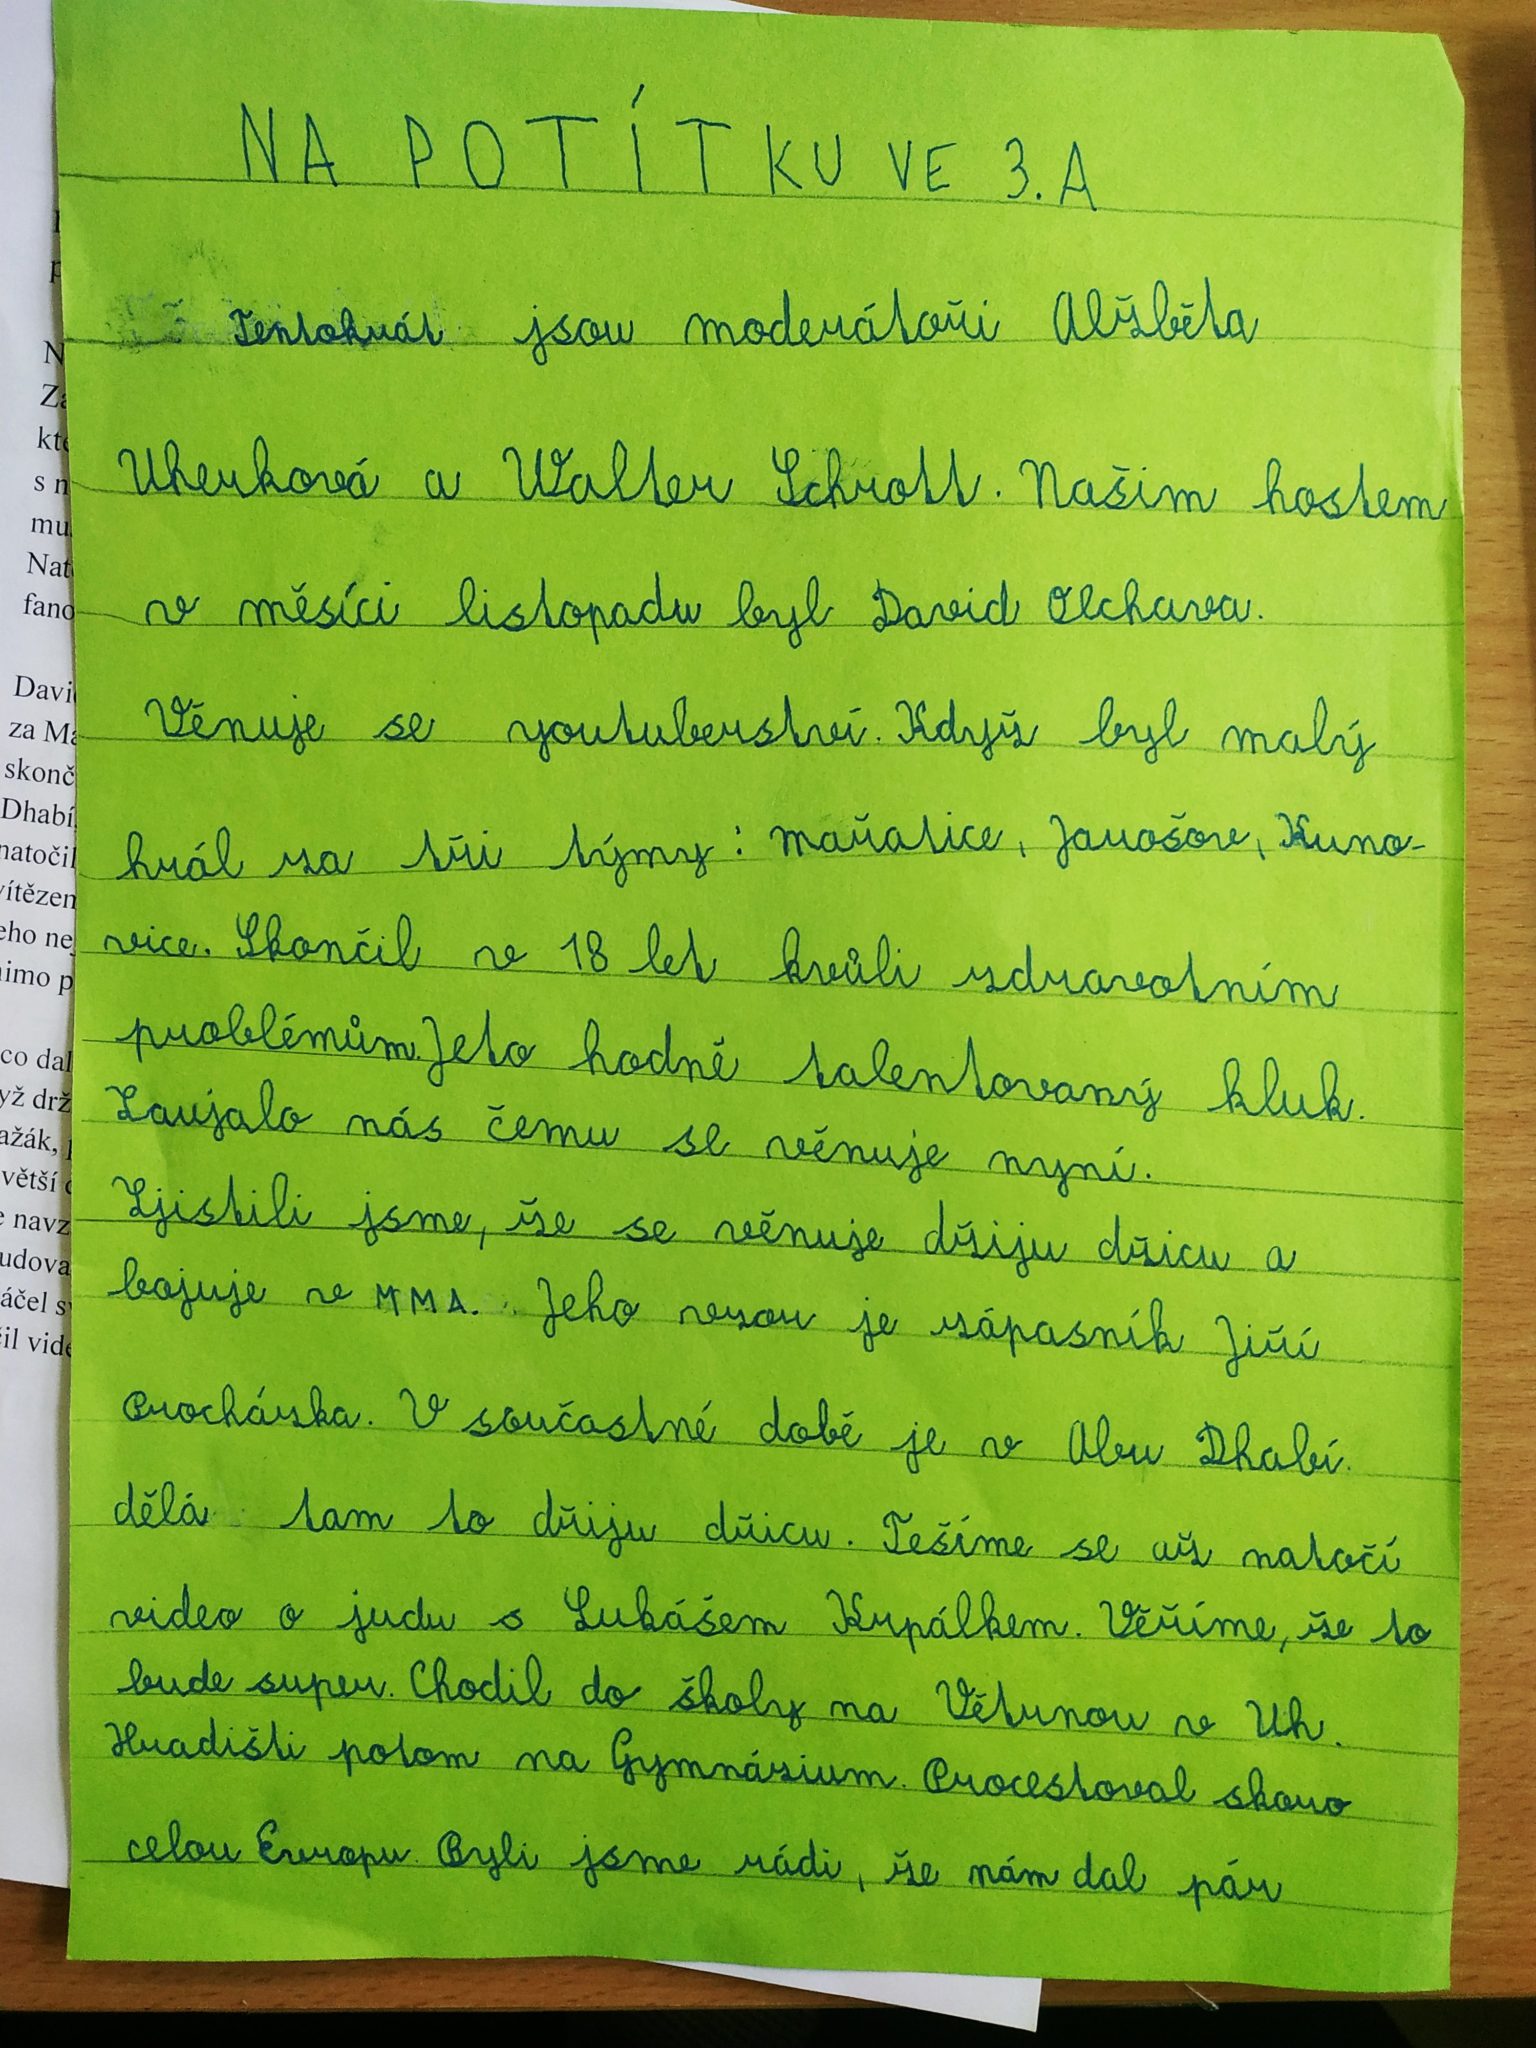 NA POTÍTKU VE 3.A
Tentokrát jsou moderátoři Alžběta
Uherková a Walter Schrott. Našim hostem
v měsíci listopadu byl David Olchava.
Věnuje se youtuberství. Když byl malý
hrál za tři týmy: mařatice, Jarošov, Kuno-
vice. Skončil v 18 let kvůli zdravotním
problémům. Jeto hodně talentovaný kluk.
Zaujalo nás čemu se věnuje nyní.
Zjistili jsme, že se věnuje džiju džicu a
bojuje v MMA. Jeho vzou je zápasník Jiří
Procházka. V součastné době je v Abu Dhabí.
dělá tam to dřiju dřicu. Těšíme se až natočí
video o judu s Lukášem Krpálkem. Věříme, že to
bude super. Chodil do školy na Větrnou v Uh.
Hradišti potom na Gymnázium. Procestoval skoro
celou Evropu. Byli jsme rádi, že nám dal pár
N
Za
kte
s n
mu
Nat
fano
Davi
za Ma
skonč
Dhabí,
natočil
vítězen
eho ne
imo p
co dal
yž drž
ažák,
větší
e navz
udova
áčel s
il vide